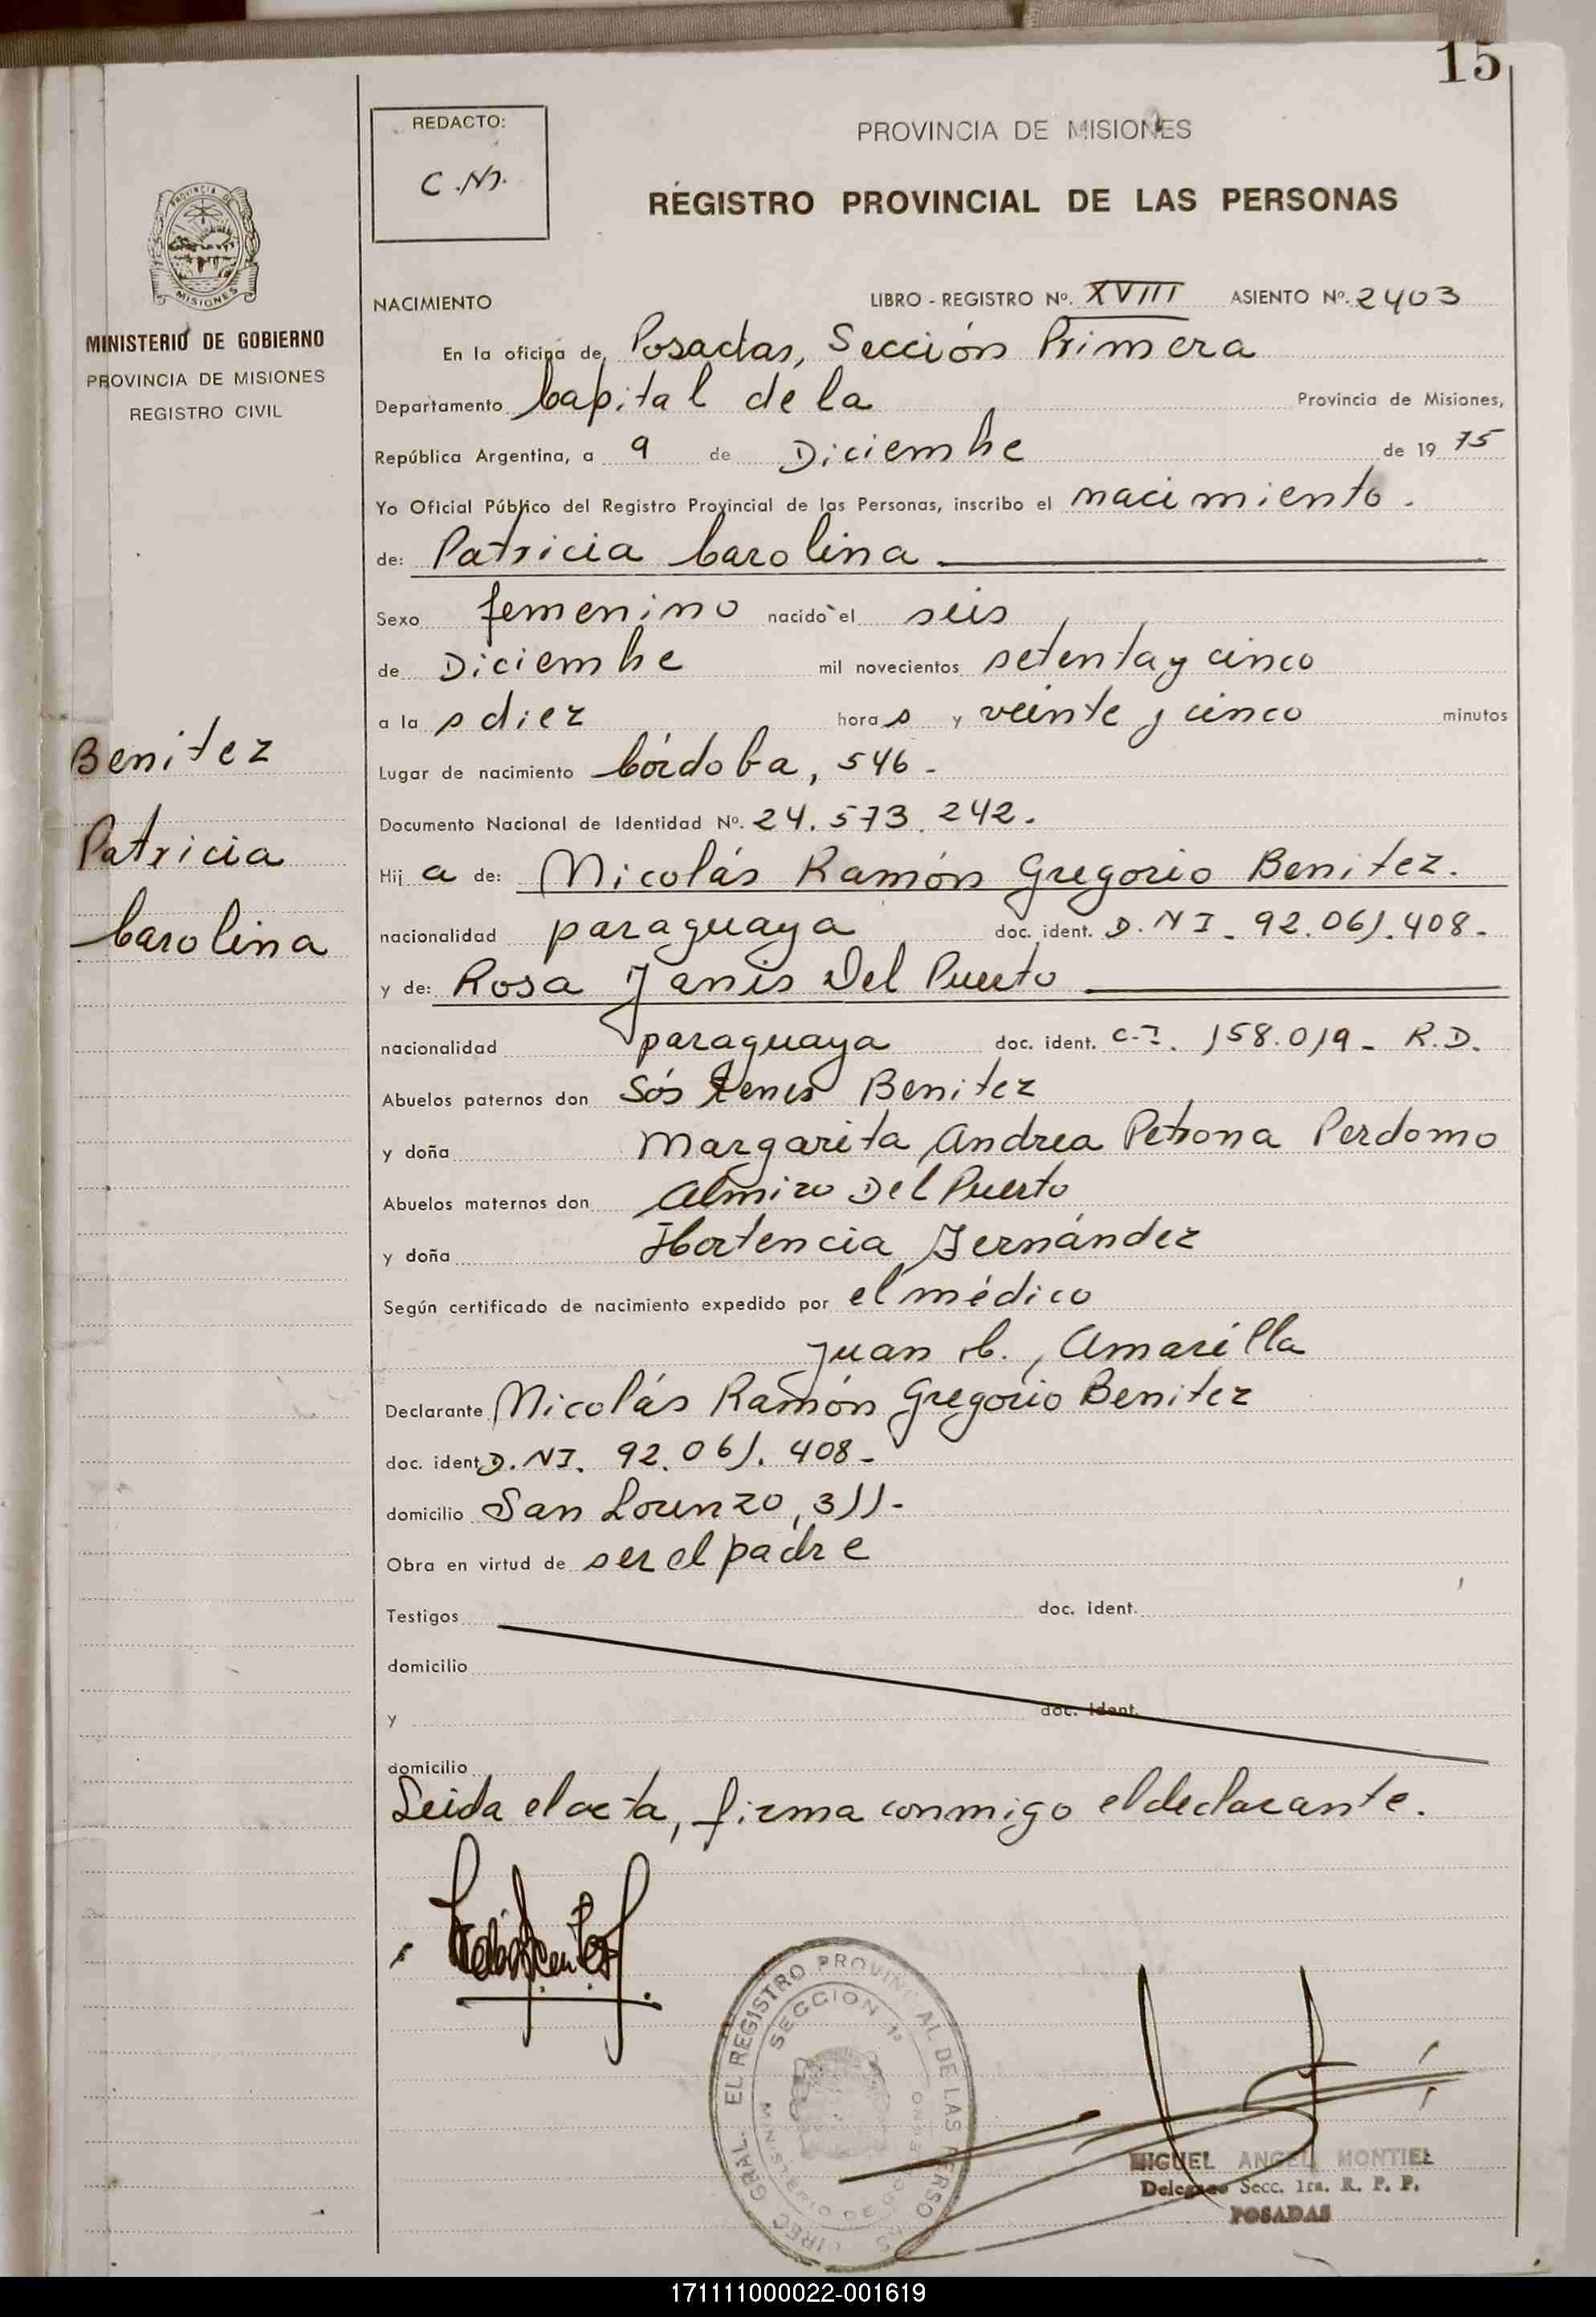 15
REDACTO:
C.M.
PROVINCIA DE MISIONES
REGISTRO PROVINCIAL DE LAS PERSONAS
PROVINCIA DE
MISIONES
MINISTERIO DE GOBIERNO
PROVINCIA DE MISIONES
REGISTRO CIVIL
NACIMIENTO LIBRO - REGISTRO Nº. XVIII ASIENTO Nº. 2403
En la oficina de Posadas, Sección Primera
Departamento Capital de la Provincia de Misiones,
República Argentina, a 9 de Diciembre de 19 75
Yo Oficial Público del Registro Provincial de las Personas, inscribo el nacimiento.
de: Patricia Carolina
Sexo femenino nacido el seis
de Diciembre mil novecientos setenta y cinco
a la s diez hora s y veinte y cinco minutos
Benitez
Patricia
Carolina
Lugar de nacimiento Córdoba, 546.
Documento Nacional de Identidad Nº. 24.573.242.
Hij a de: Nicolás Ramón Gregorio Benitez.
nacionalidad paraguaya doc. ident. D.N I. 92.061.408.
y de: Rosa Janis Del Puerto
nacionalidad paraguaya doc. ident. C.I. 158.019 - R.D.
Abuelos paternos don Sóstenes Benitez
y doña Margarita Andrea Petrona Perdomo
Abuelos maternos don Almiro Del Puerto
y doña Hortencia Fernández
Según certificado de nacimiento expedido por el médico
Juan C., Amarilla
Declarante Nicolás Ramón Gregorio Benitez
doc. ident D.NI. 92.061.408 -
domicilio San Lorenzo, 311-
Obra en virtud de ser el padre
Testigos doc. ident.
domicilio
y doc. ident.
domicilio
Leida el acta, firma conmigo el declarante.
GRAL. EL REGISTRO PROVINCIAL DE LAS PERSO
SECCION 1ª
MINISTERIO DE GOBIERNO
MIGUEL ANGEL MONTIEL
Delegado Secc. 1ra. R. P. P.
POSADAS
171111000022-001619